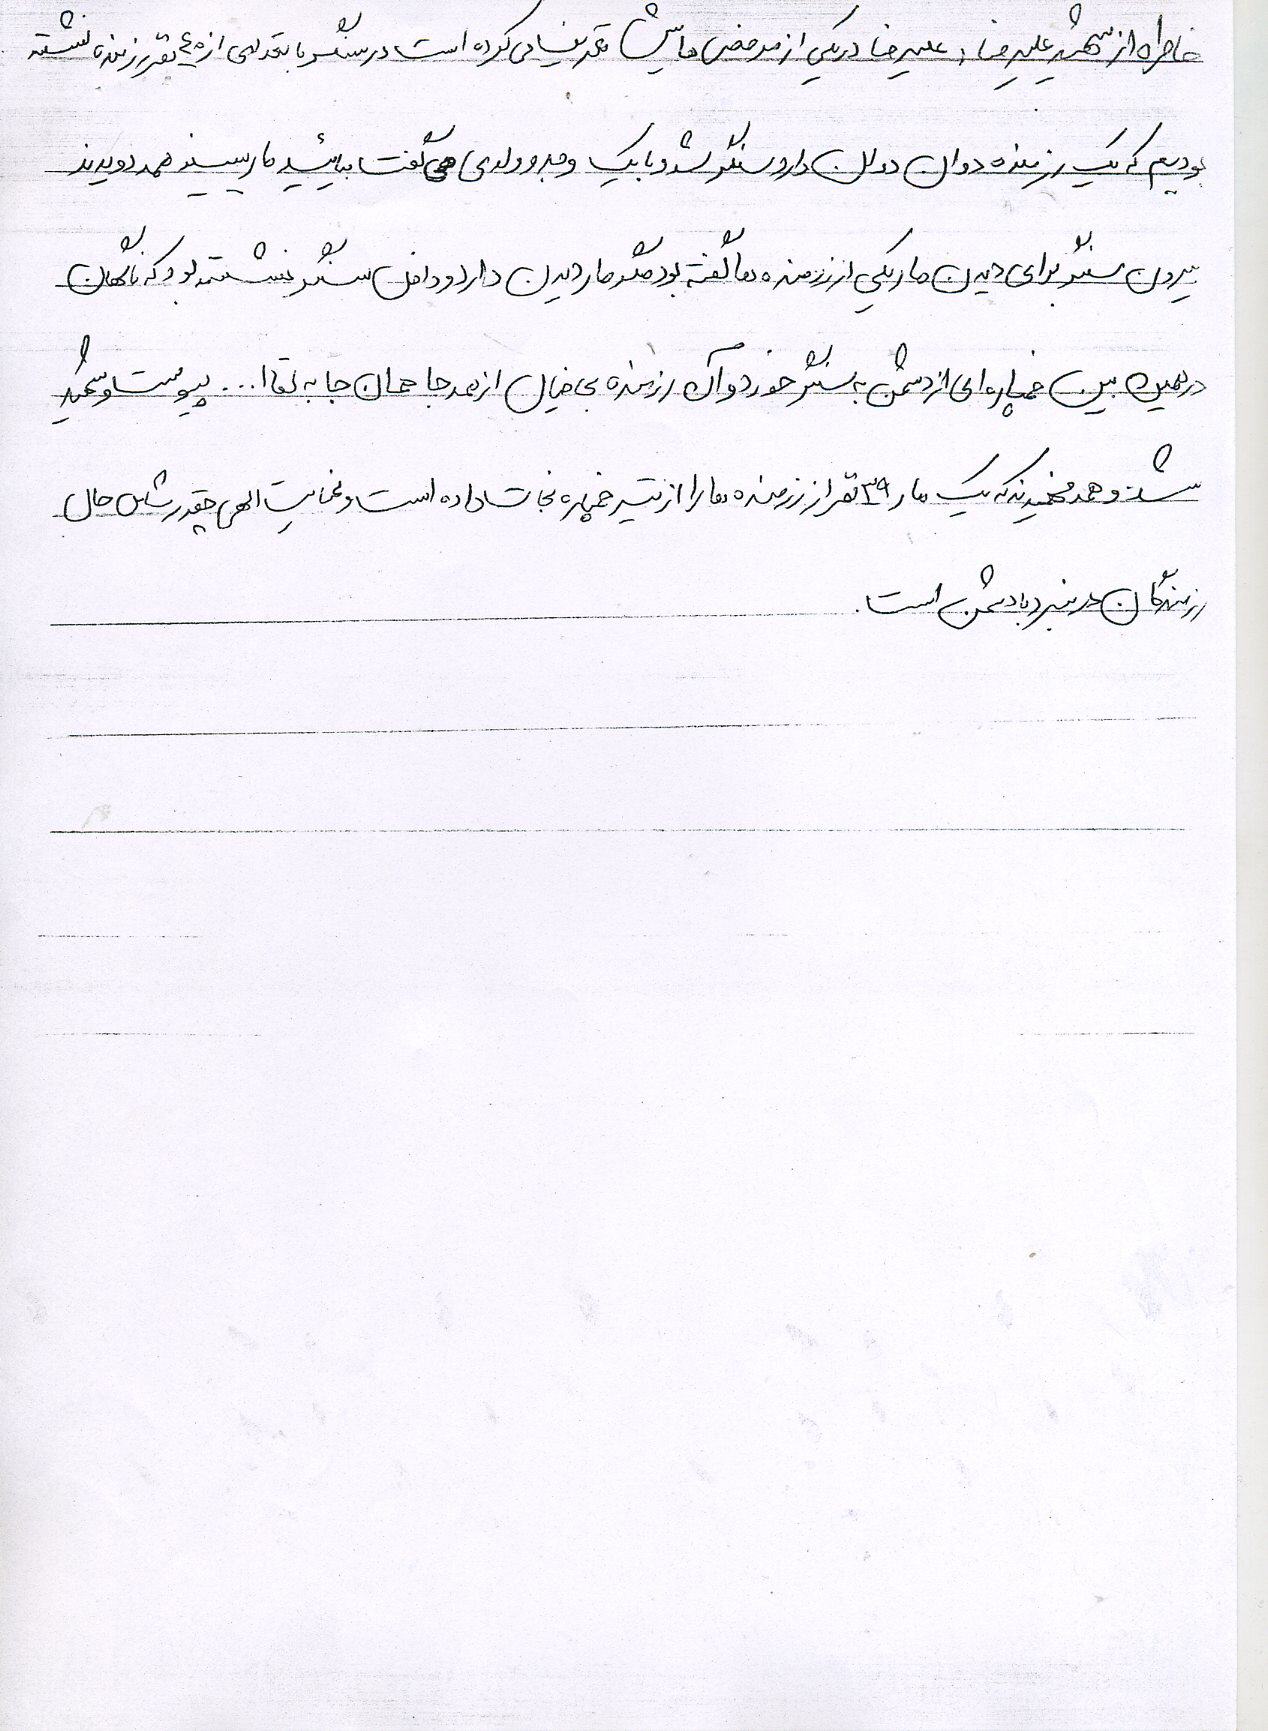 خاطره از شهید علیرضا : علیرضا در یکی از مرخصی هایش تعریف می کرده است در سنگر با تعدادی از ۴۰ نفر رزمنده نشسته
بودیم که یک رزمنده دوان دوان وارد سنگر شد و با یک وجد و ولعی می گفت بیائید مار ببینید همه دویدند
بیرون سنگر برای دیدن مار یکی از رزمنده ها گفته بود مگر مار دیدن دارد و داخل سنگر نشسته بود که ناگهان
در همین بین خمپاره ای از دشمن به سنگر خورد و آن رزمنده بی خیال از همه جا همان جا به لقاا... پیوست و شهید
شد و همه فهمیدند که یک مار ۳۹ نفر از رزمنده ها را از تیر خمپاره نجات داده است و عنایت الهی چقدر شامل حال
رزمندگان در نبرد با دشمن است.